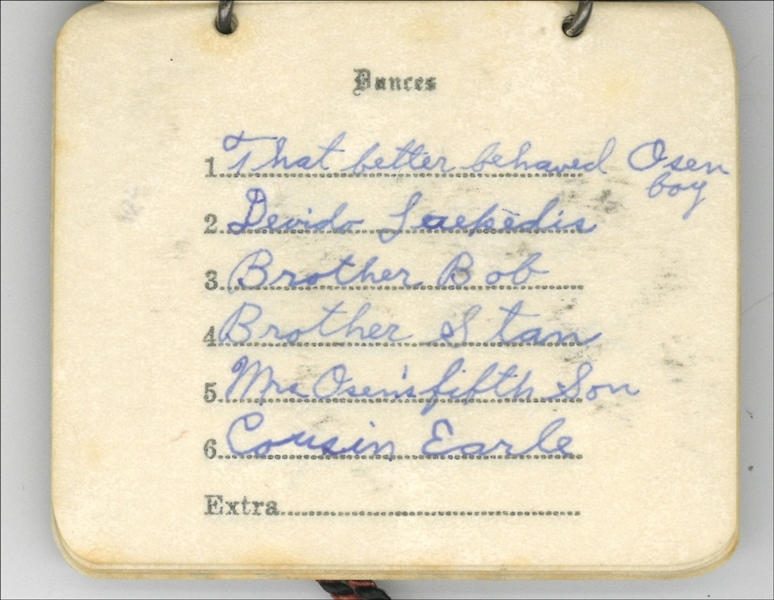 Dances
1 That better behaved Osen
boy
2 Devido
3 Brother Bob
4 Brother Stan
5 Mrs Osen's fifth Son
6 Cousin Earle
Extra